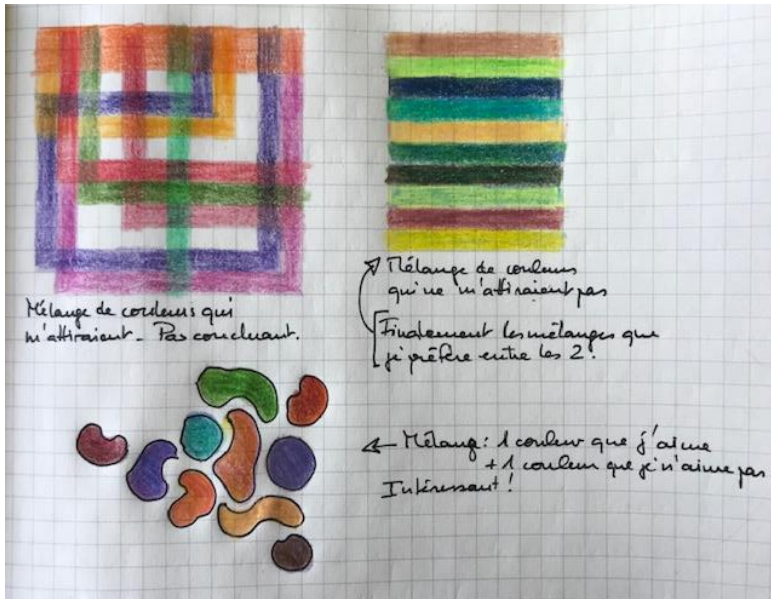 Mélange de couleurs qui
m'attiraient - Pas concluant.
Mélange de couleurs
qui ne m'attiraient pas
Finalement les mélanges que
je préfère entre les 2 !
Mélange : 1 couleur que j'aime
+ 1 couleur que je n'aime pas
Intéressant !